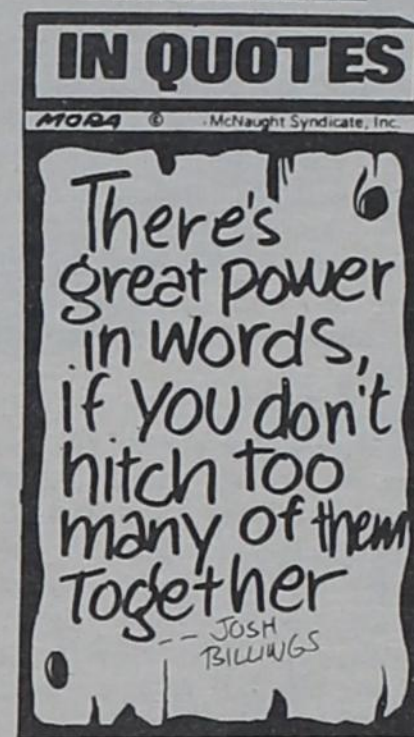 IN QUOTES
MORA © McNaught Syndicate, Inc.
There's
great power
in words,
if you don't
hitch too
many of them
Together
-- JOSH
BILLINGS